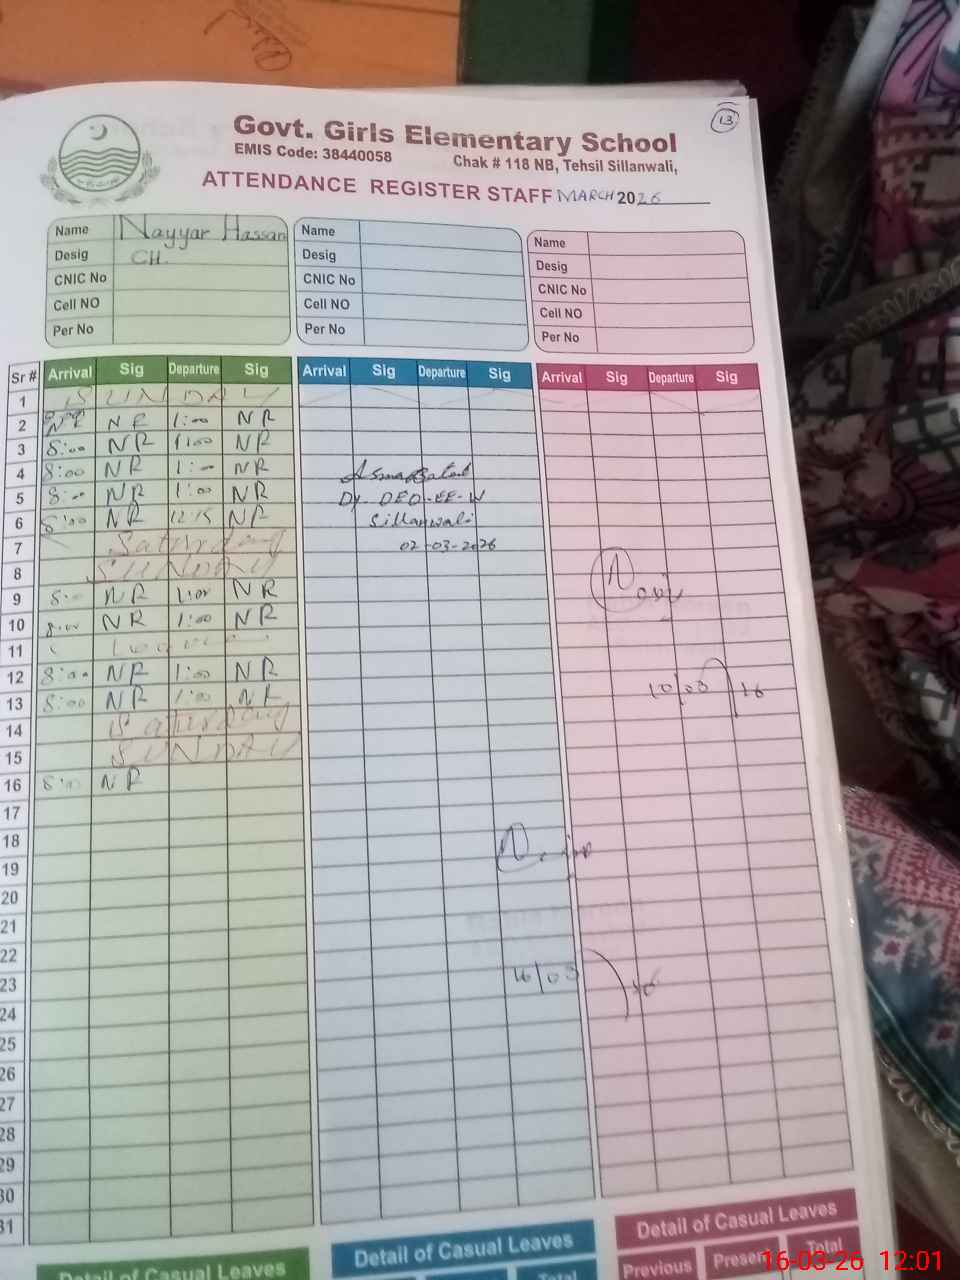 13
Govt. Girls Elementary School
EMIS Code: 38440058 Chak # 118 NB, Tehsil Sillanwali,
ATTENDANCE REGISTER STAFF MARCH 2026
Name Nayyar Hassan
Desig CH.
CNIC No
Cell NO
Per No
Name
Desig
CNIC No
Cell NO
Per No
Name
Desig
CNIC No
Cell NO
Per No
Sr # Arrival Sig Departure Sig Arrival Sig Departure Sig Arrival Sig Departure Sig
1 SUNDAY
2 NR 1:00 NR
3 8:00 NR 1:00 NR
4 8:00 NR 1:00 NR
5 8:00 NR 1:00 NR
6 8:00 NR 12:15 NR
7 Saturday
8 SUNDAY
9 8:00 NR 1:00 NR
10 8:00 NR 1:00 NR
11 Leave
12 8:00 NR 1:00 NR
13 8:00 NR 1:00 NR
14 Saturday
15 SUNDAY
16 8:00 NR
17
18
19
20
21
22
23
24
25
26
27
28
29
30
31
Asma Batool
Dy. DEO-EE-W
Sillanwali
02-03-2026
10/03/26
16/03/26
Detail of Casual Leaves
Detail of Casual Leaves
Total
Detail of Casual Leaves
Previous Present Total
16-03-26 12:01